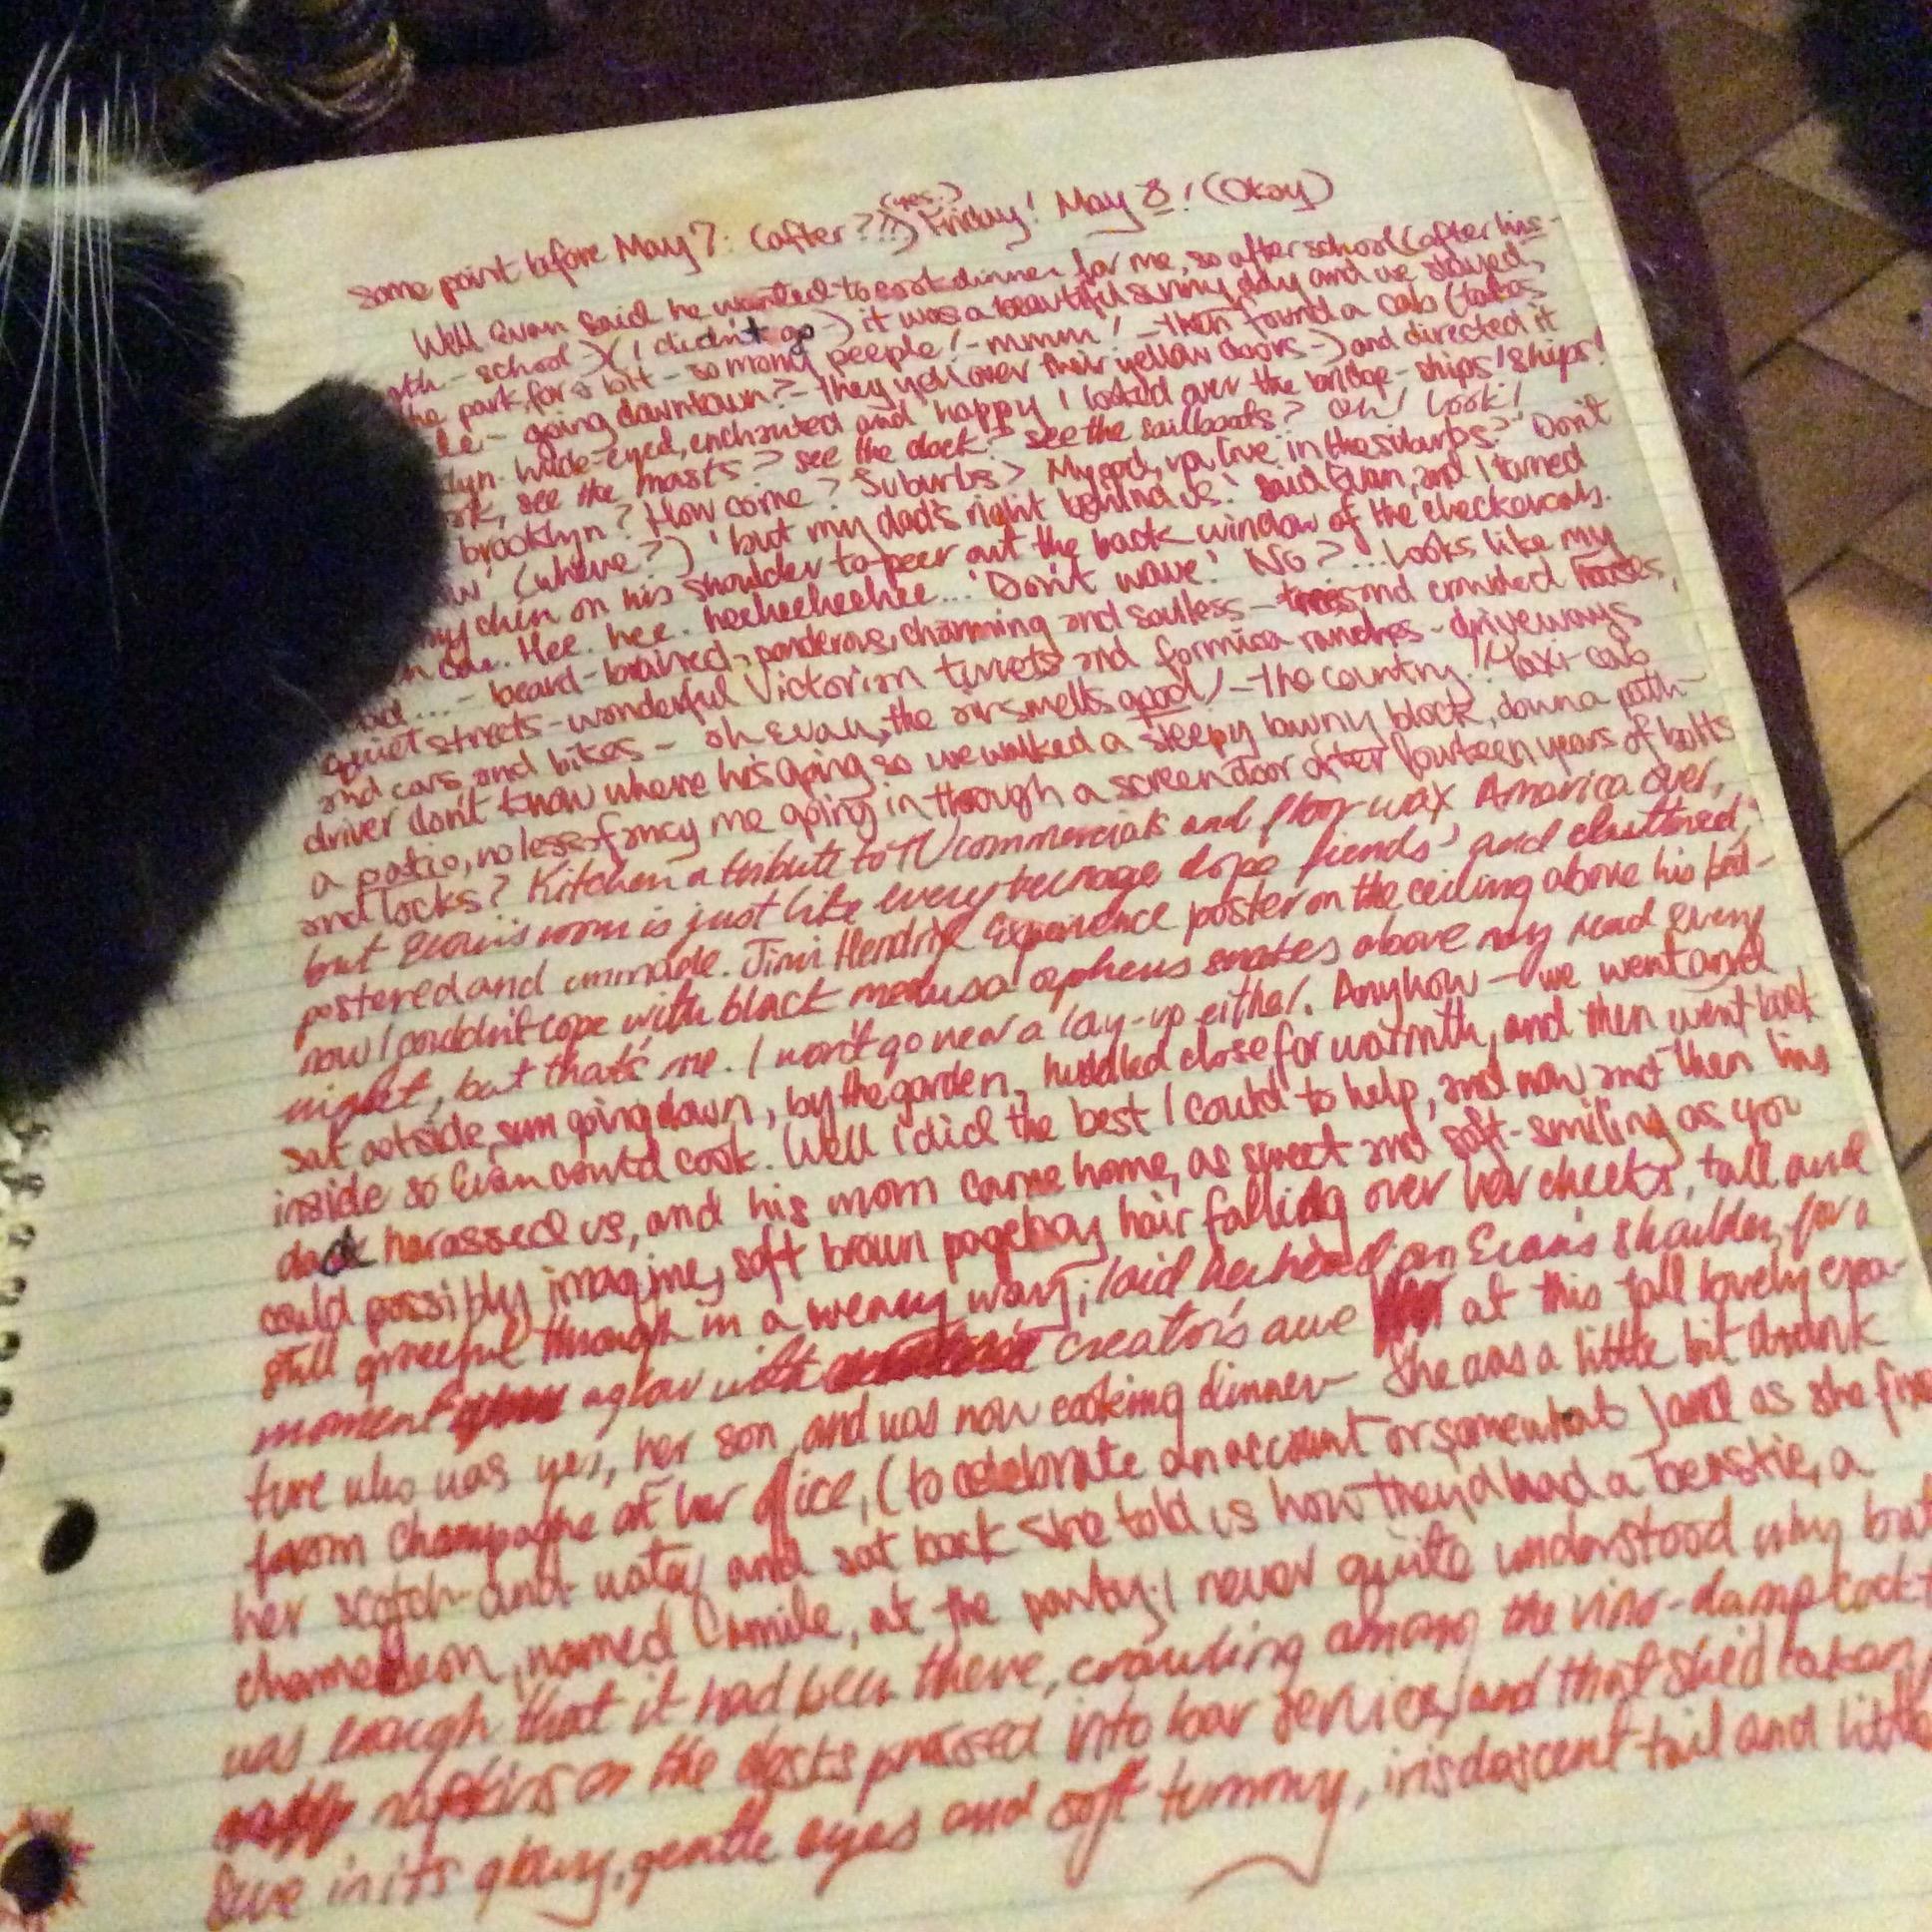 some point before May 7: (after???) (yes.) Friday! May 8! (Okay)
Well Evan said he wanted to cook dinner for me, so after school (after his-
school-) (I didn't go-) it was a beautiful sunny day and we stayed,
the park for a bit - so many people! - mmm! - then found a cab (
- going downtown? - they yell over their yellow doors-) and directed it
lyn. Wide-eyed, enchanted and happy I looked over the bridge - ships! ships!
see the masts? see the dock? see the sailboats? Oh! Look!
brooklyn? How come? Suburbs? My god, you live in the suburbs? 'Don't
(where?) 'but my dad's right behind us.' said Evan, and I turned
my chin on his shoulder to peer out the back window of the checkercab.
Hee. hee. heeheeheehee... 'Don't wave.' No?... Looks like my
... - beard-brained, ponderous, charming and soulless - trees and crowded houses,
quiet streets - wonderful Victorian turrets and formica ranches - driveways
and cars and bikes - oh Evan, the air smells good! - the country! Taxi-cab
driver don't know where he's going so we walked a sleepy lawny block, down a path-
a patio, no less - fancy me going in through a screen door after fourteen years of bolts
and locks? Kitchen a tribute to TV commercials and floor wax America over,
but Evan's room is just like every teenage dope fiends' and cluttered,
postered and unmade. Jimi Hendrix Experience poster on the ceiling above his bed-
now I couldn't cope with black medusa orpheus snakes above my head every
night, but that's me. I won't go near a lay-up either. Anyhow - we went and
sat outside, sun going down, by the garden, huddled close for warmth, and then went back
inside so Evan could cook. Well I did the best I could to help, and now and then his
dad harassed us, and his mom came home, as sweet and soft-smiling as you
could possibly imagine, soft brown pageboy hair falling over her cheeks, tall and
still graceful though in a weary way; laid her head on Evan's shoulder, for a
moment aglow with creator's awe at this tall lovely crea-
ture who was yes, her son, and was now cooking dinner - She was a little bit drunk
from champagne at her office, (to celebrate an account or somewhat) and as she
her scotch-and-water and sat back she told us how they'd had a beastie, a
chameleon, named Camile, at the party; I never quite understood why but
was enough that it had been there, crawling among the vino-damp
napkins on the desks pressed into bar service, and that she'd taken
in its glory, gentle eyes and soft tummy, irisdescent tail and little